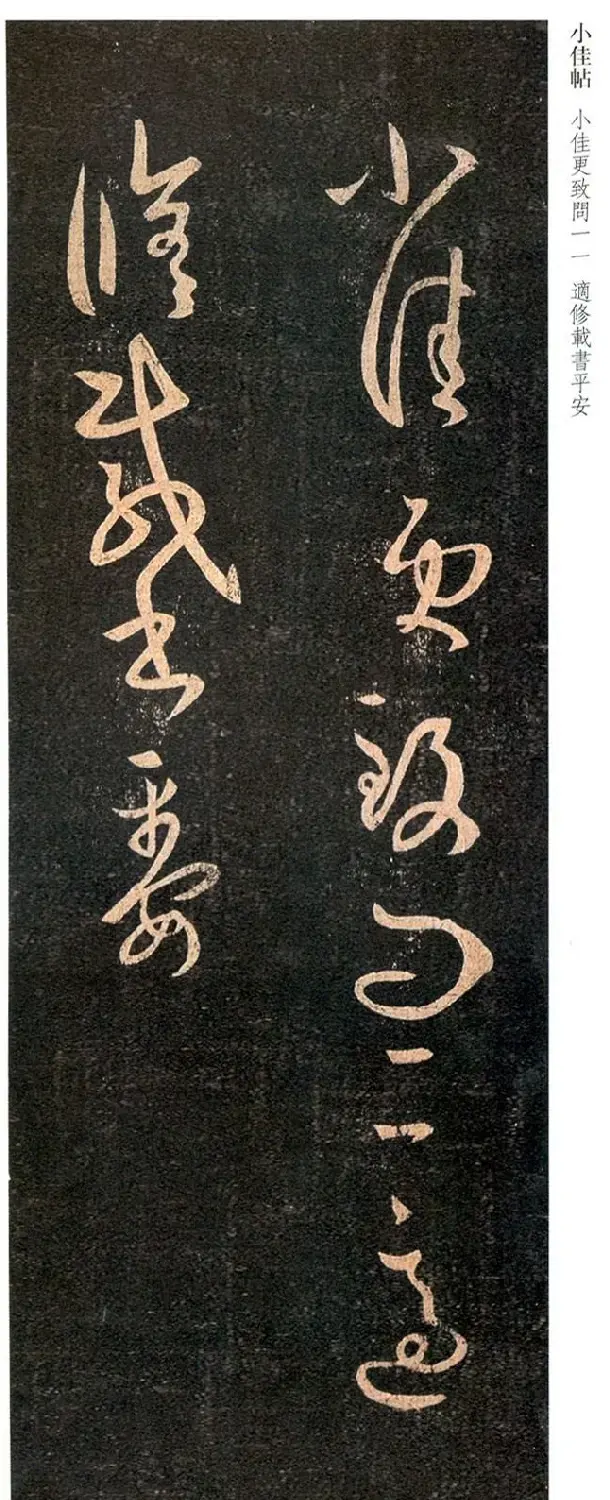 小佳帖 小佳更致問一一 適修載書平安
小佳更致問一一適
修載書平安